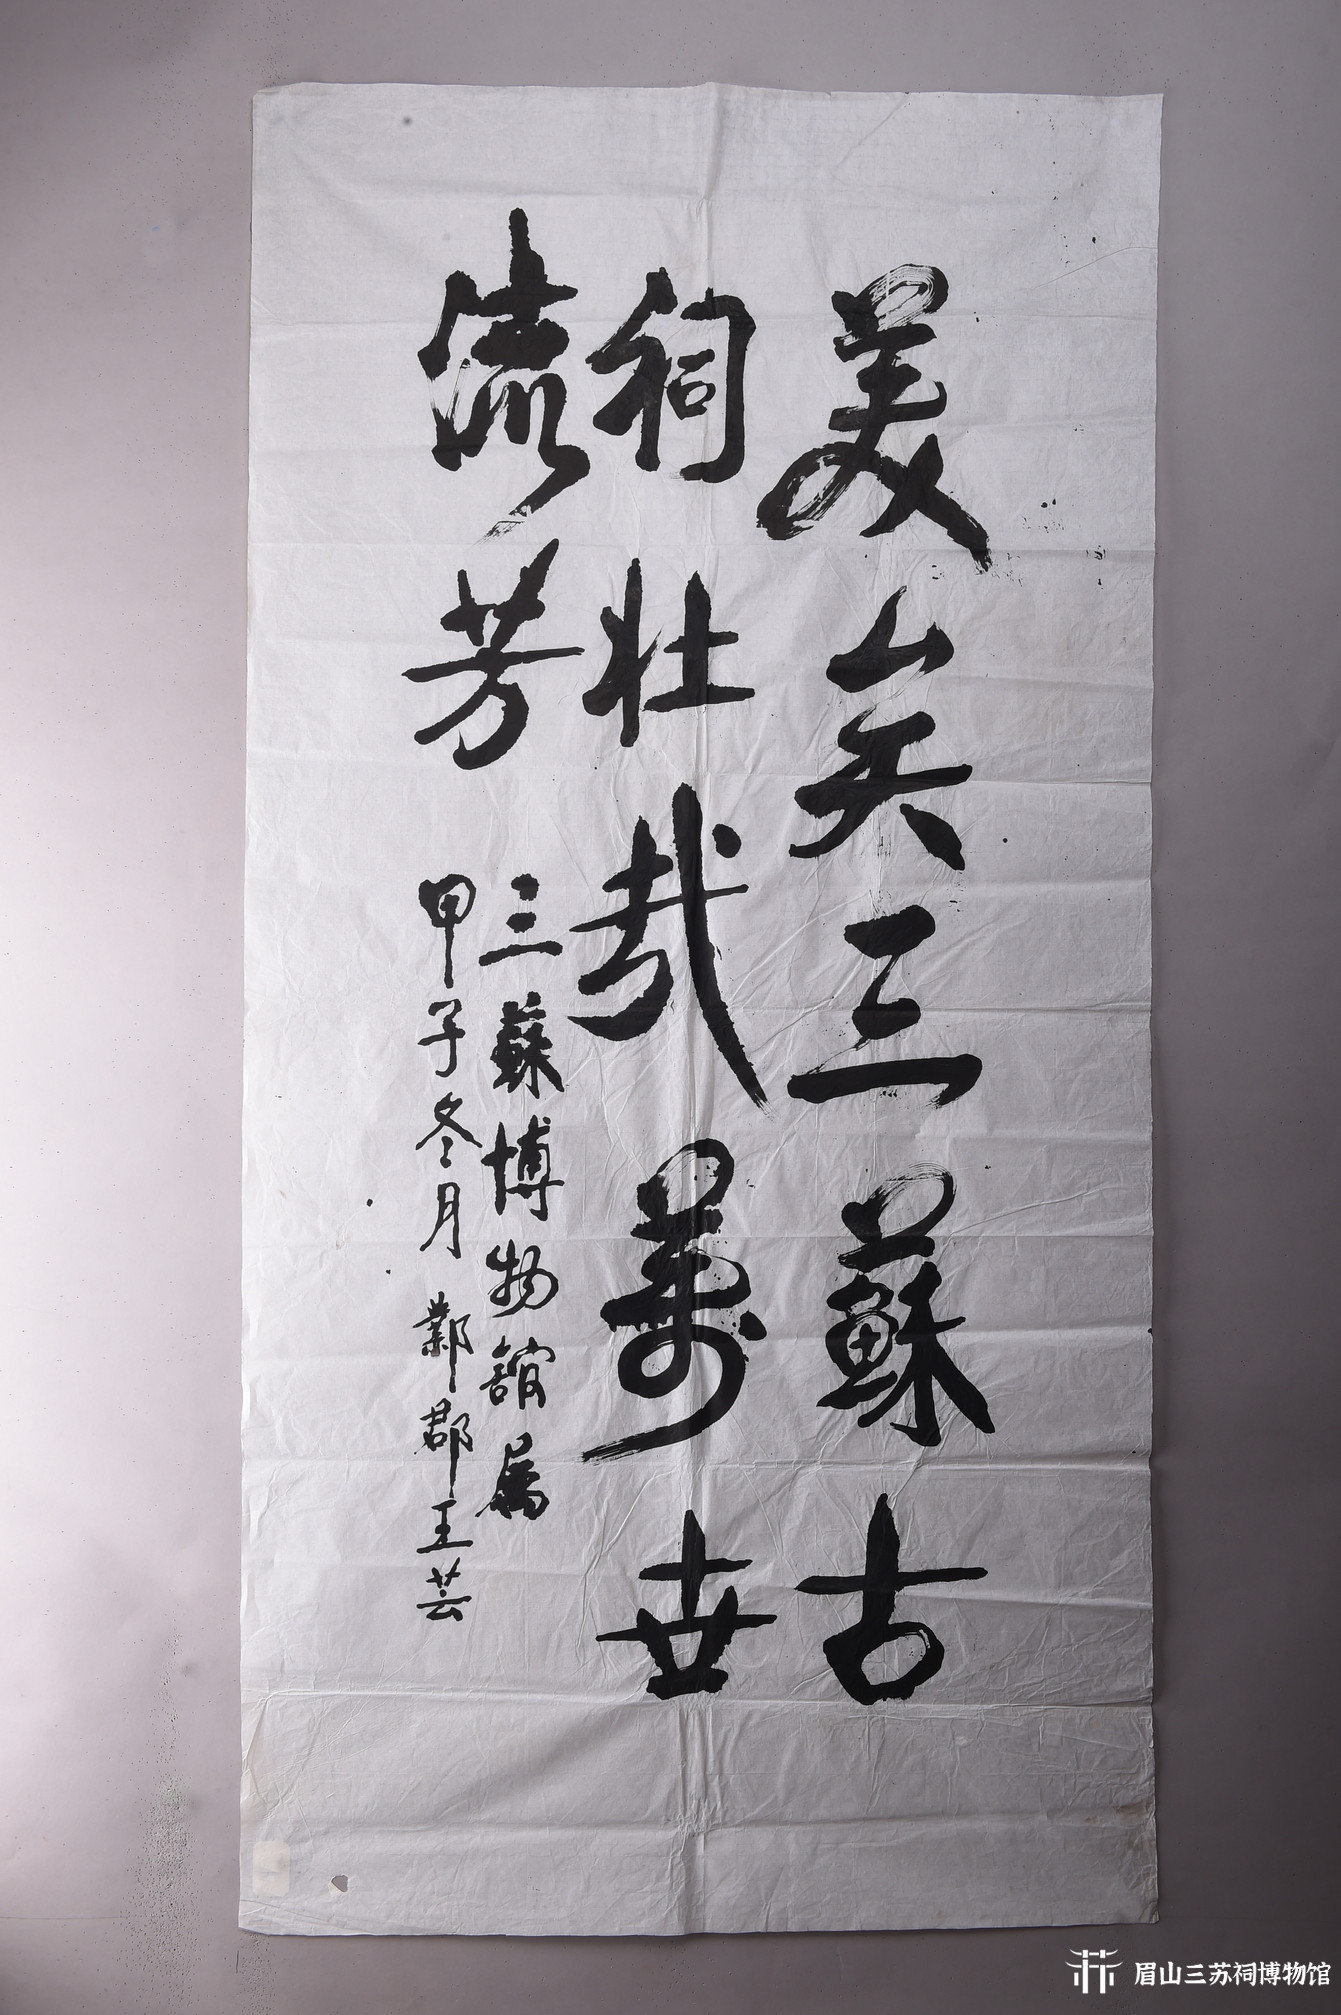 美矣三蘇古
祠壯哉萬世
流芳
三蘇博物館屬
甲子冬月鄴郡王芸
眉山三苏祠博物馆